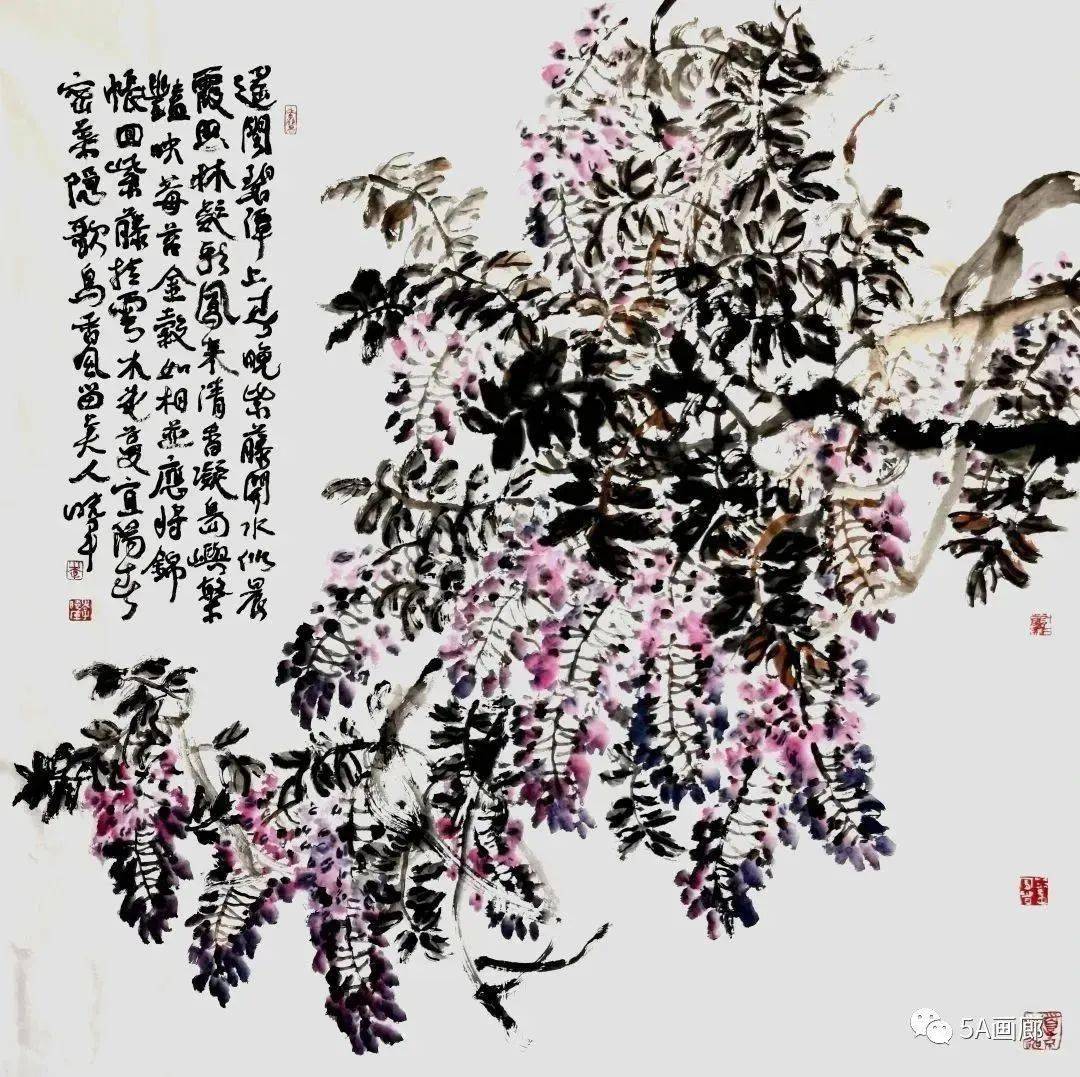 遥聞碧潭上春晚紫藤開水似晨
霞照林疑彩鳳来清香凝島嶼繁
豔映莓苔金穀如相並應將錦
帳回紫藤掛雲木花蔓宜陽春
密葉隱歌鳥香風留美人
5A画廊